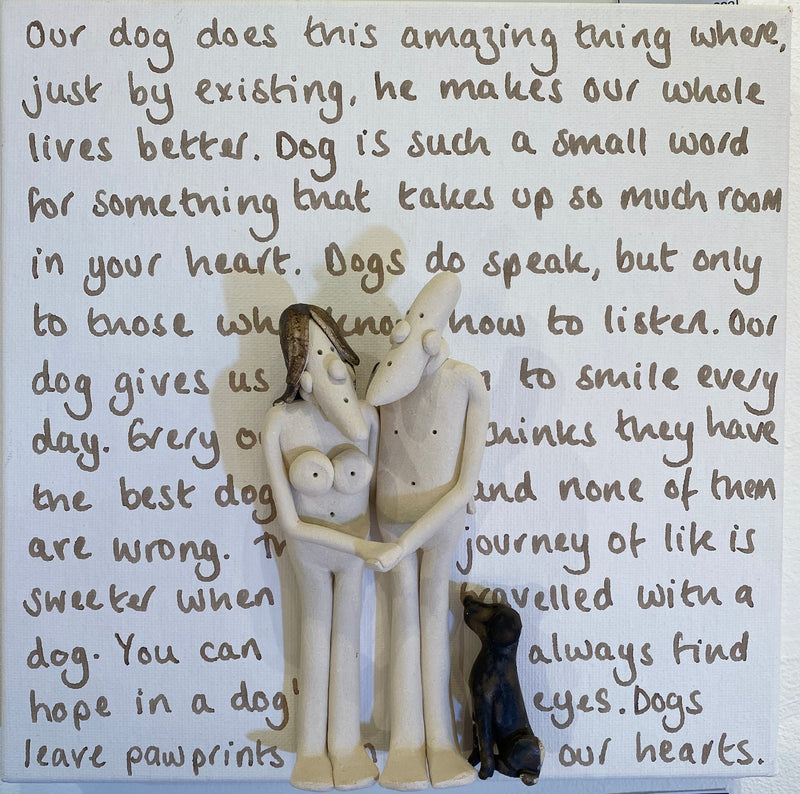 Our dog does this amazing thing where,
just by existing, he makes our whole
lives better. Dog is such a small word
for something that takes up so much room
in your heart. Dogs do speak, but only
to those wh know how to listen. Our
dog gives us to smile every
day. Every o thinks they have
the best dog and none of them
are wrong. journey of life is
sweeter when travelled with a
dog. You can always find
hope in a dog' eyes. Dogs
leave pawprints our hearts.